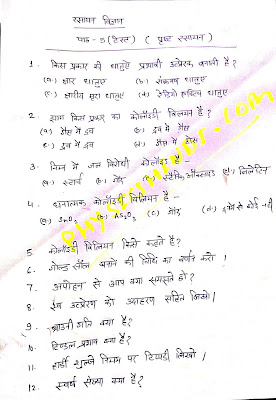 रसायन विज्ञान
पाठ - 5 (टेस्ट) ( पृष्ठ रसायन )
1. किस प्रकार की धातुएँ प्रभावी उत्प्रेरक बनाती है ?
(a) क्षार धातुएँ (b) संक्रमण धातुएँ
(c) क्षारीय मृदा धातुएँ (d) रेडियो सक्रिय धातुएँ
2. झाग किस प्रकार का कोलॉइडी विलयन है ?
(a) गैस में द्रव (b) द्रव में गैस
(c) द्रव में द्रव (d) गैस में ठोस
3. निम्न में जल विरोधी कोलॉइड है -
(a) स्टार्च (b) गोंद (c) (d) जिलेटिन
4. धनात्मक कोलॉइडी विलयन है -
(a) SnO₂ (b) As₂O₃ (c) गोंद (d) इनमें से कोई नहीं
5. कोलॉइडी विलियन किसे कहते है ?
6. गोल्ड सॉल बनाने की विधि का वर्णन करो ।
7. अपोहन से आप क्या समझते हो ?
8. उत्प्रेरण को उदाहरण सहित लिखो ।
9. ब्राउनी गति क्या है ?
10. टिण्डल प्रभाव क्या है ?
11. हार्डी शुल्जे नियम पर टिप्पणी लिखो ।
12. स्वर्ण संख्या क्या है ?